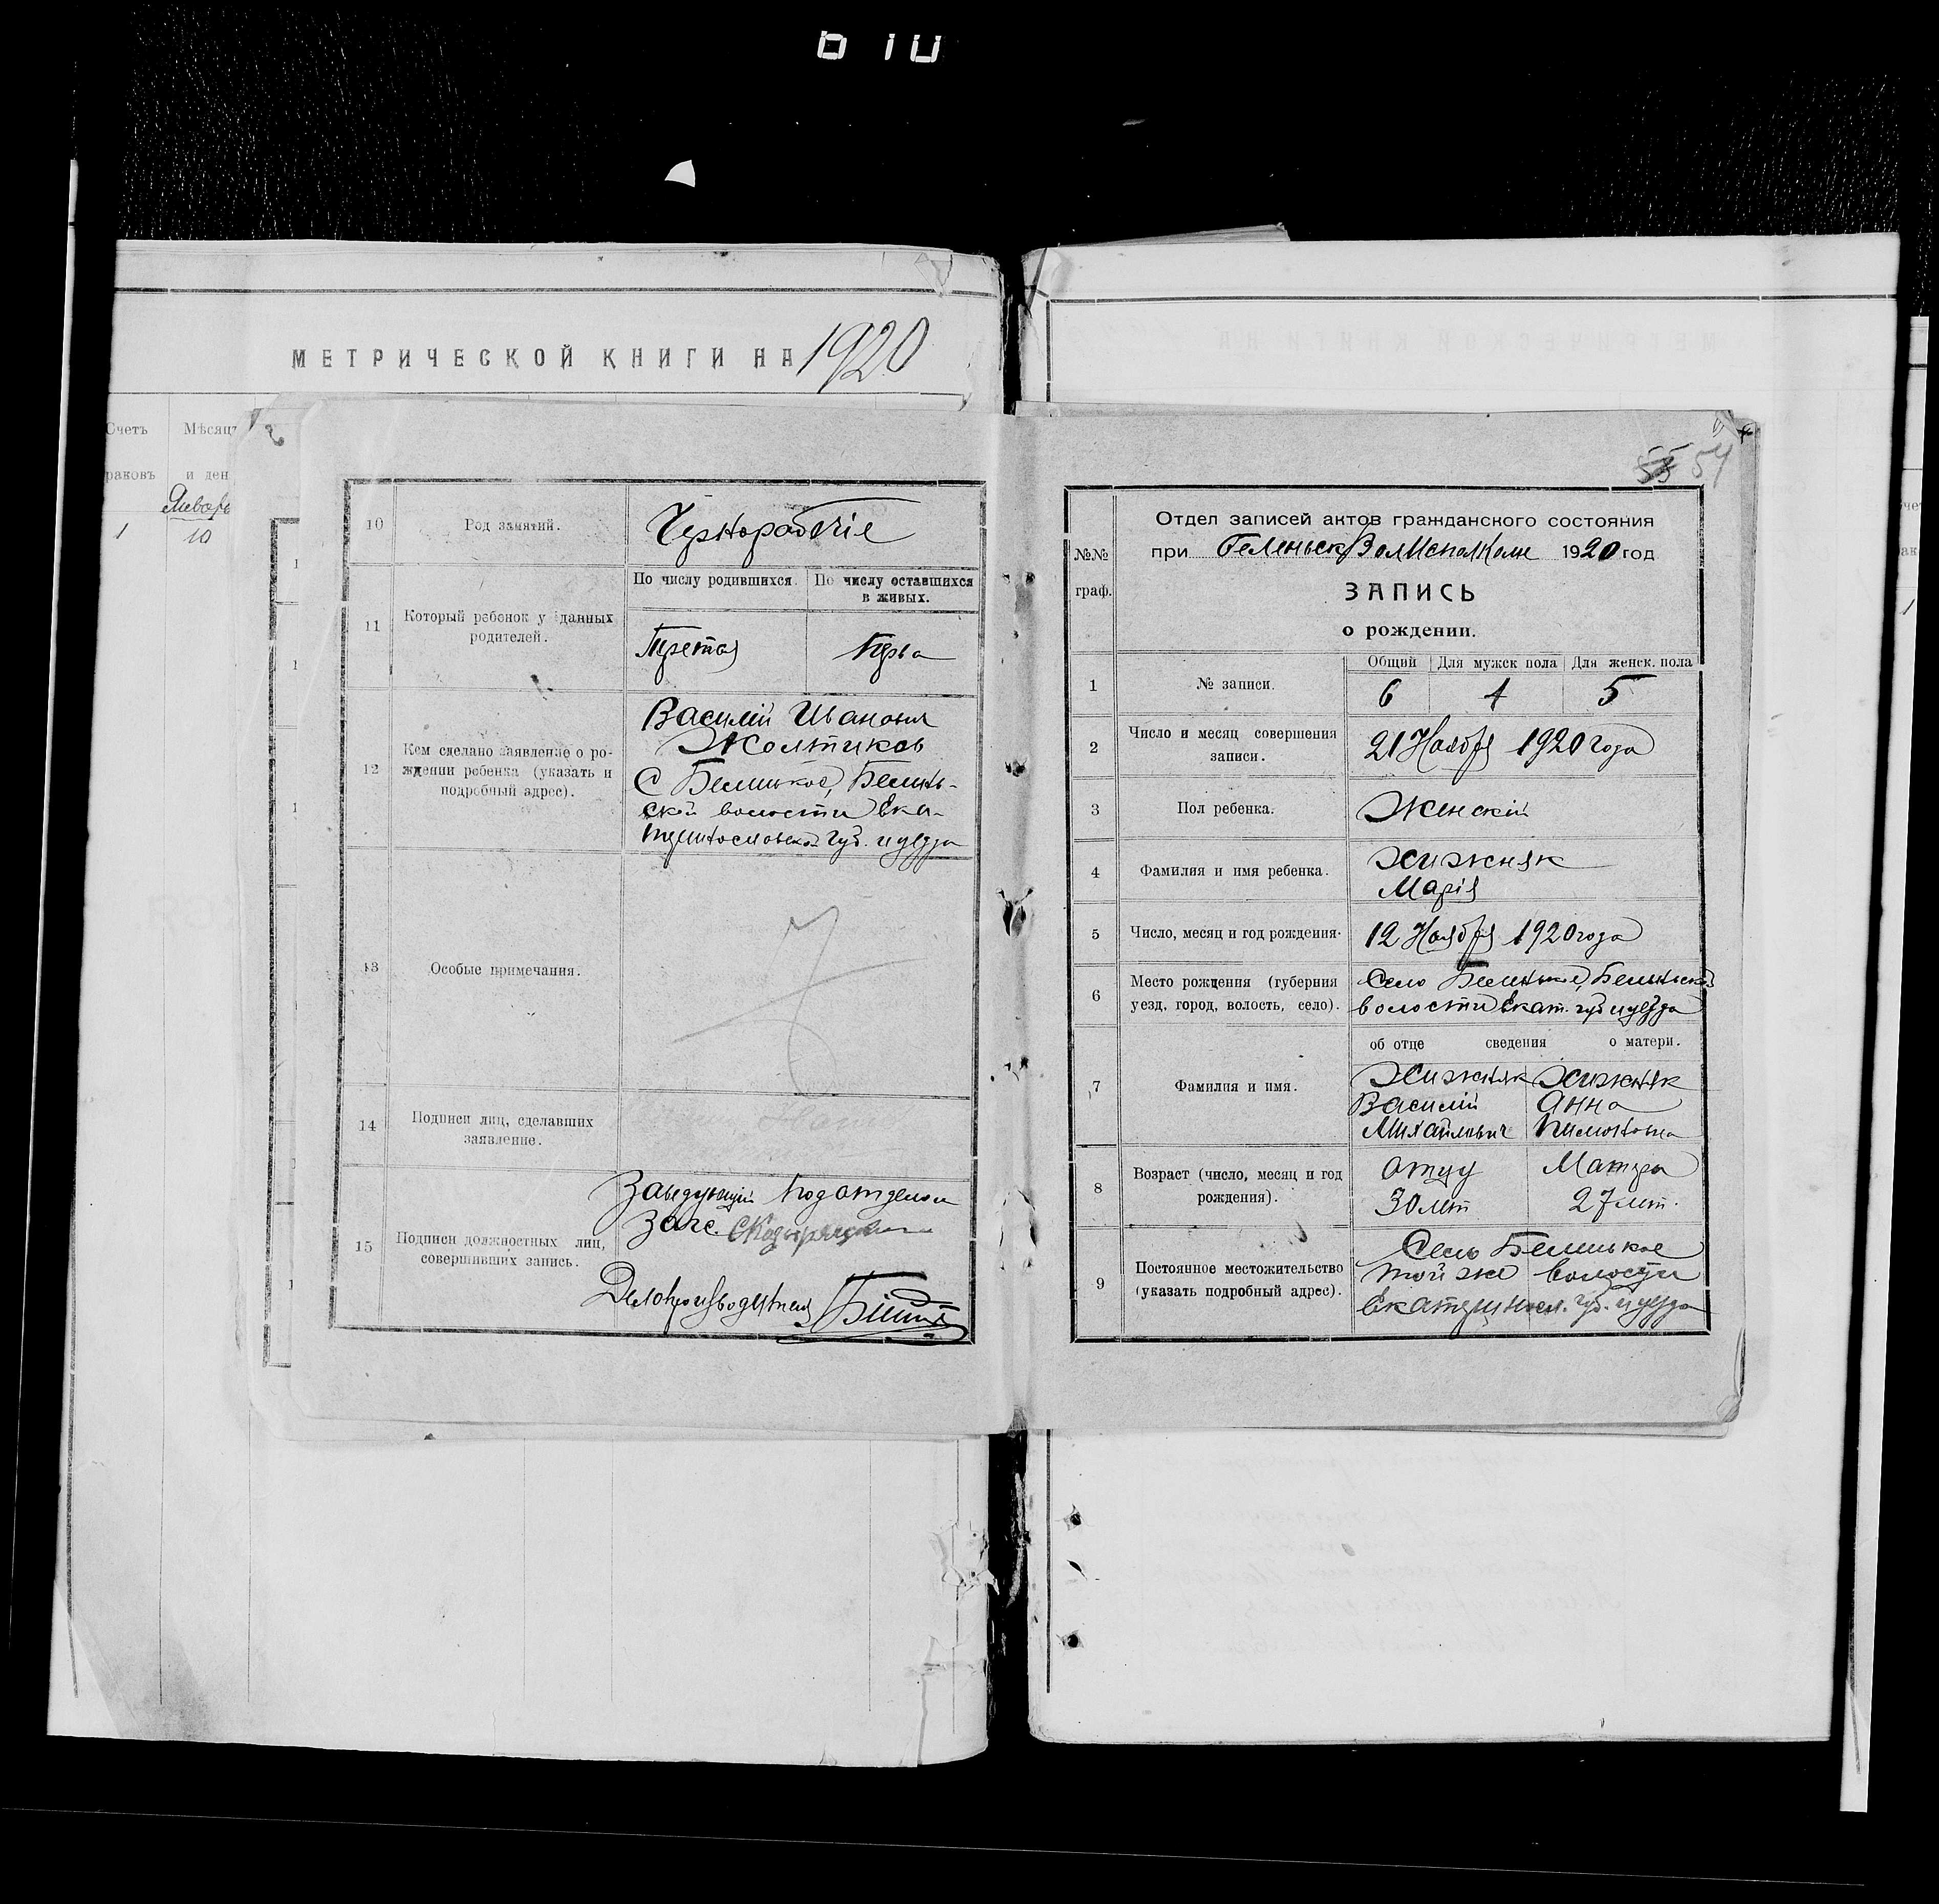 МЕТРИЧЕСКОЙ КНИГИ НА 1920
Счет
раковъ
Мѣсяцъ
и ден
Январь
1
10
10
Род занятий.
Чернорабочіе
11
Который ребенок у данных
родителей.
По числу родившихся.
По числу оставшихся
в живых.
Третяя
Перва
12
Кем сделано заявление о ро-
ждении ребенка (указать и
подробный адрес).
Василій Иванович
Жолтиков
С
волости Ека-
губ. и уезда
13
Особые примечания.
14
Подписи лиц, сделавших
заявление.
15
Подписи должностных лиц,
совершивших запись.
Заведующій подотделом
Загс.
Делопроизводитель
55 54
№№
граф.
Отдел записей актов гражданского состояния
при 1920 год
ЗАПИСЬ
о рождении.
1
№ записи.
Общий
Для мужск пола
Для женск. пола
6
1
5
2
Число и месяц совершения
записи.
21 Ноября 1920 года
3
Пол ребенка.
Женскій
4
Фамилия и имя ребенка.
Хижняк
Марія
5
Число, месяц и год рождения.
12 Ноября 1920 года
6
Место рождения (губерния
уезд, город, волость, село).
Село
волости Екат. губ и уезда
об отце сведения о матери.
7
Фамилия и имя.
Хижняк
Василій
Михайлович
Хижняк
Анна
8
Возраст (число, месяц и год
рождения).
отцу
30 лет
Матери
27 лет.
9
Постоянное местожительство
(указать подробный адрес).
Село
той же волости
губ. и уезда